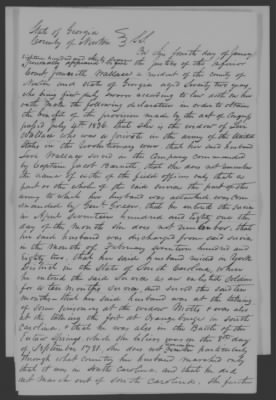 State of Georgia
County of Newton } Sct
On this fourth day of January
Eighteen hundred and thirty
personally appeared before the justices of the inferior
Court Jennett Wallace a resident of the county of
Newton and State of Georgia aged Seventy two years
who being first duly sworn according to law doth on her
oath make the following declaration in order to obtain
the benefit of the provision made by the act of Congress
passed July 4th 1836 that she is the widow of
Wallace who was a private in the army of the United
States in the Revolutionary war that her said husband
Wallace served in the Company commanded
by Captain Jacob that she does not remember
the name of either of the field officers only that as
part or the whole of the said service the part of the
army to which her husband was attached was com
manded by Genl Green that he entered the service
in April Seventeen hundred and Eighty one the
day of the month she does not remember, that
her said husband was discharged from said service
in the month of February Seventeen hundred and
Eighty two, that her said husband resided in York
District in the State of South Carolina, when
he entered the said service as an enlisted soldier
for a ten months service, and served the said ten
months that her said husband was at the taking
of some prisoners at the widow Motts & was also
at the taking the fort at Orangeburgh in South
Carolina, & that he was also in the Battle of the
Eutaw Springs which she believes was on the 8th day
of September 1781, she does not remember particularly
through what country her husband marched only
that it was in South Carolina and that he did
not march out of South Carolina. She further